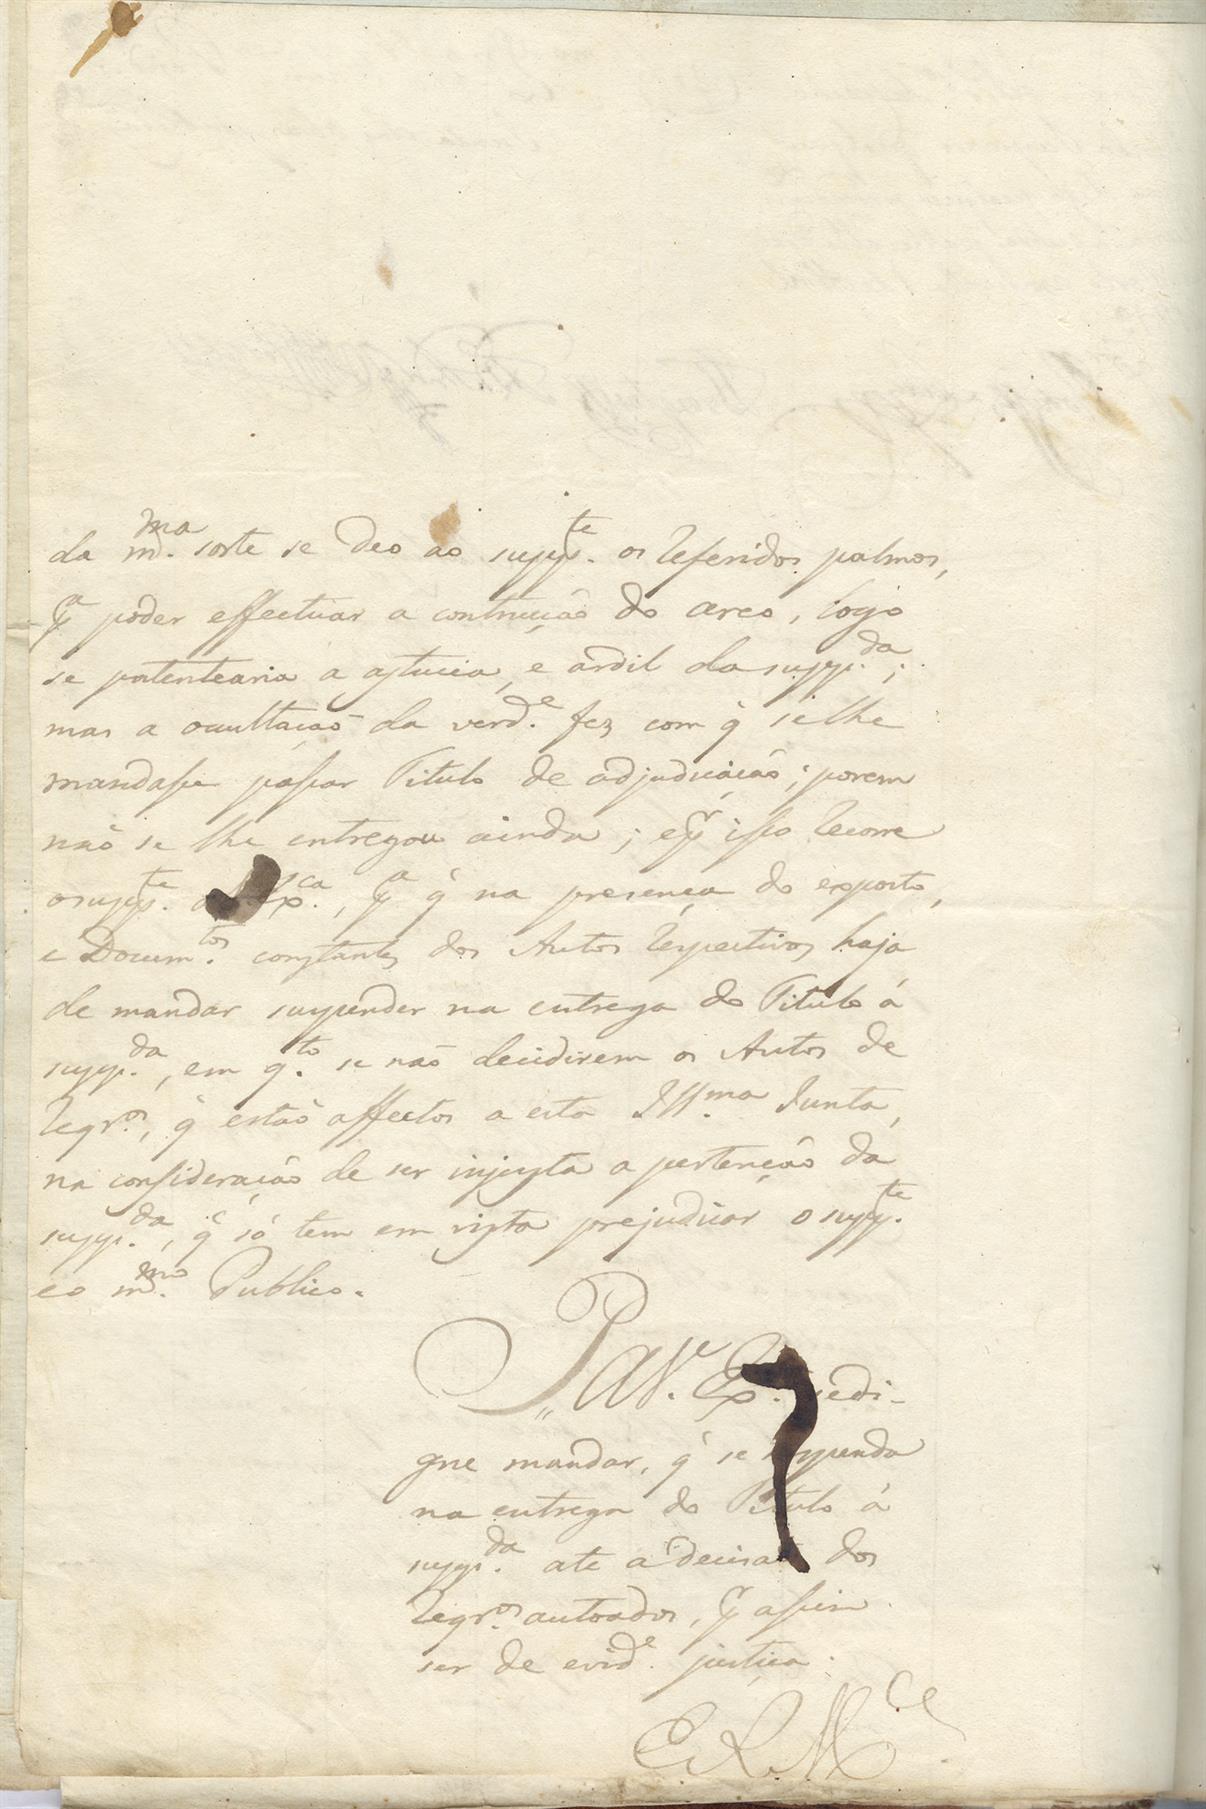 da m.ma sorte se deo ao supp.te os referidos palmos,
p.a poder effectuar a contrucção do arco, logo
se patentearia a astucia, e ardil da supp.da;
mas a ocultação da verd.e fez com q̃ se lhe
mandasse passar Titulo de adjudicação; porem
não se lhe entregou ainda; e p.r isso recorre
o supp.te a Ex.ca, p.a q̃ na presença do exposto,
e Docum.tos constantes dos Autos respectivos haja
de mandar suspender na entrega do Titulo á
supp.da, em q.to se não decidirem os Autos de
reqr.os, q̃ estão affectos a esta Ill.ma Junta,
na consideração de ser injusta a pertenção da
supp.da, q̃ só tem em vista prejudicar o supp.te
e o m.mo Publico.
P a V.e Ex. se di-
gne mandar, q̃ se suspenda
na entrega do Titulo á
supp.da ate a decisão dos
reqr.os autoados, p.r assim
ser de evid.e justiça.
E. R. M.ce